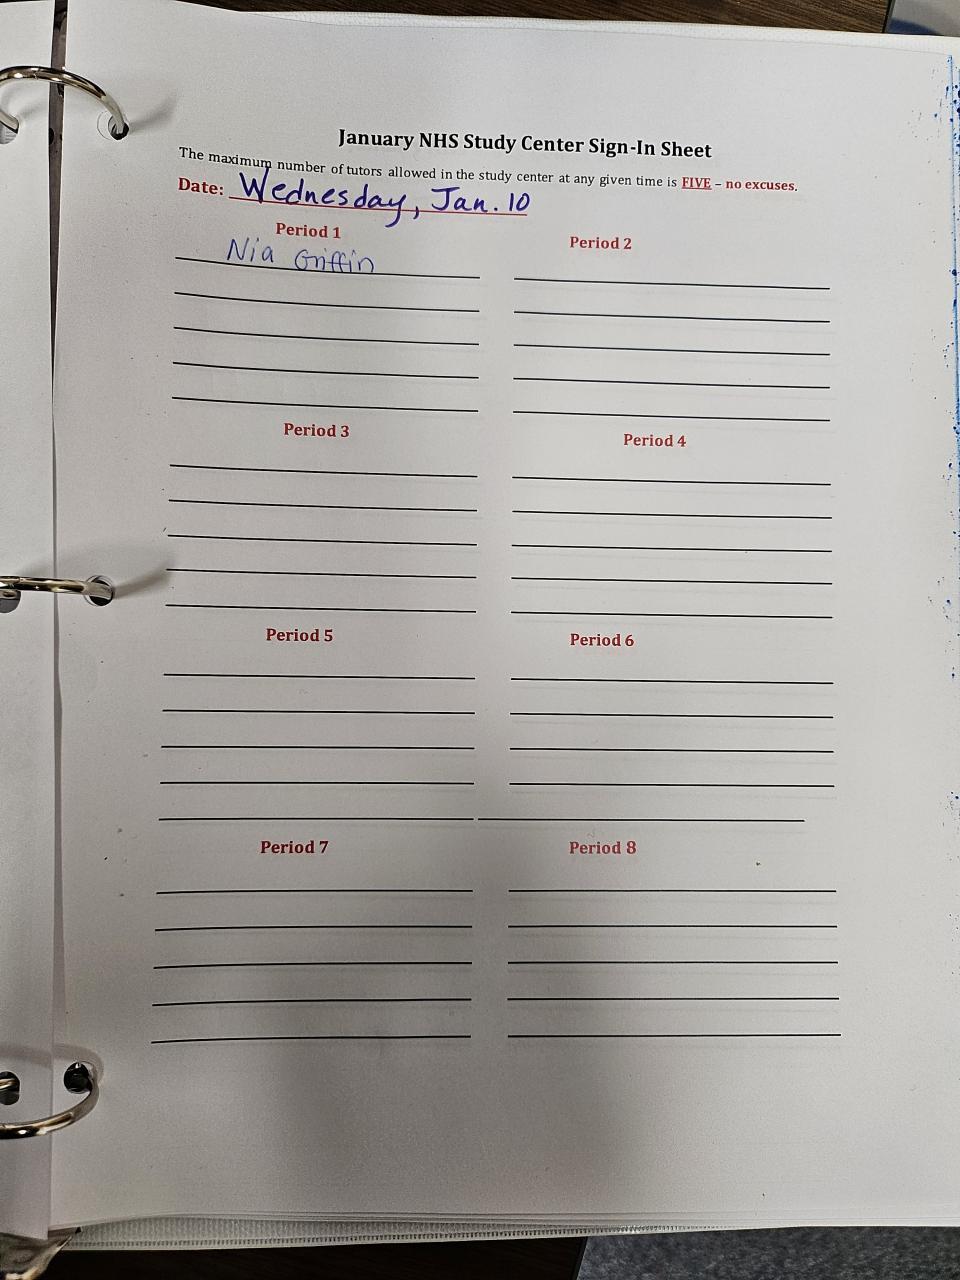 January NHS Study Center Sign-In Sheet
The maximum number of tutors allowed in the study center at any given time is FIVE – no excuses.
Date: Wednesday, Jan. 10
Period 1
Nia Griffin
Period 2
Period 3
Period 4
Period 5
Period 6
Period 7
Period 8